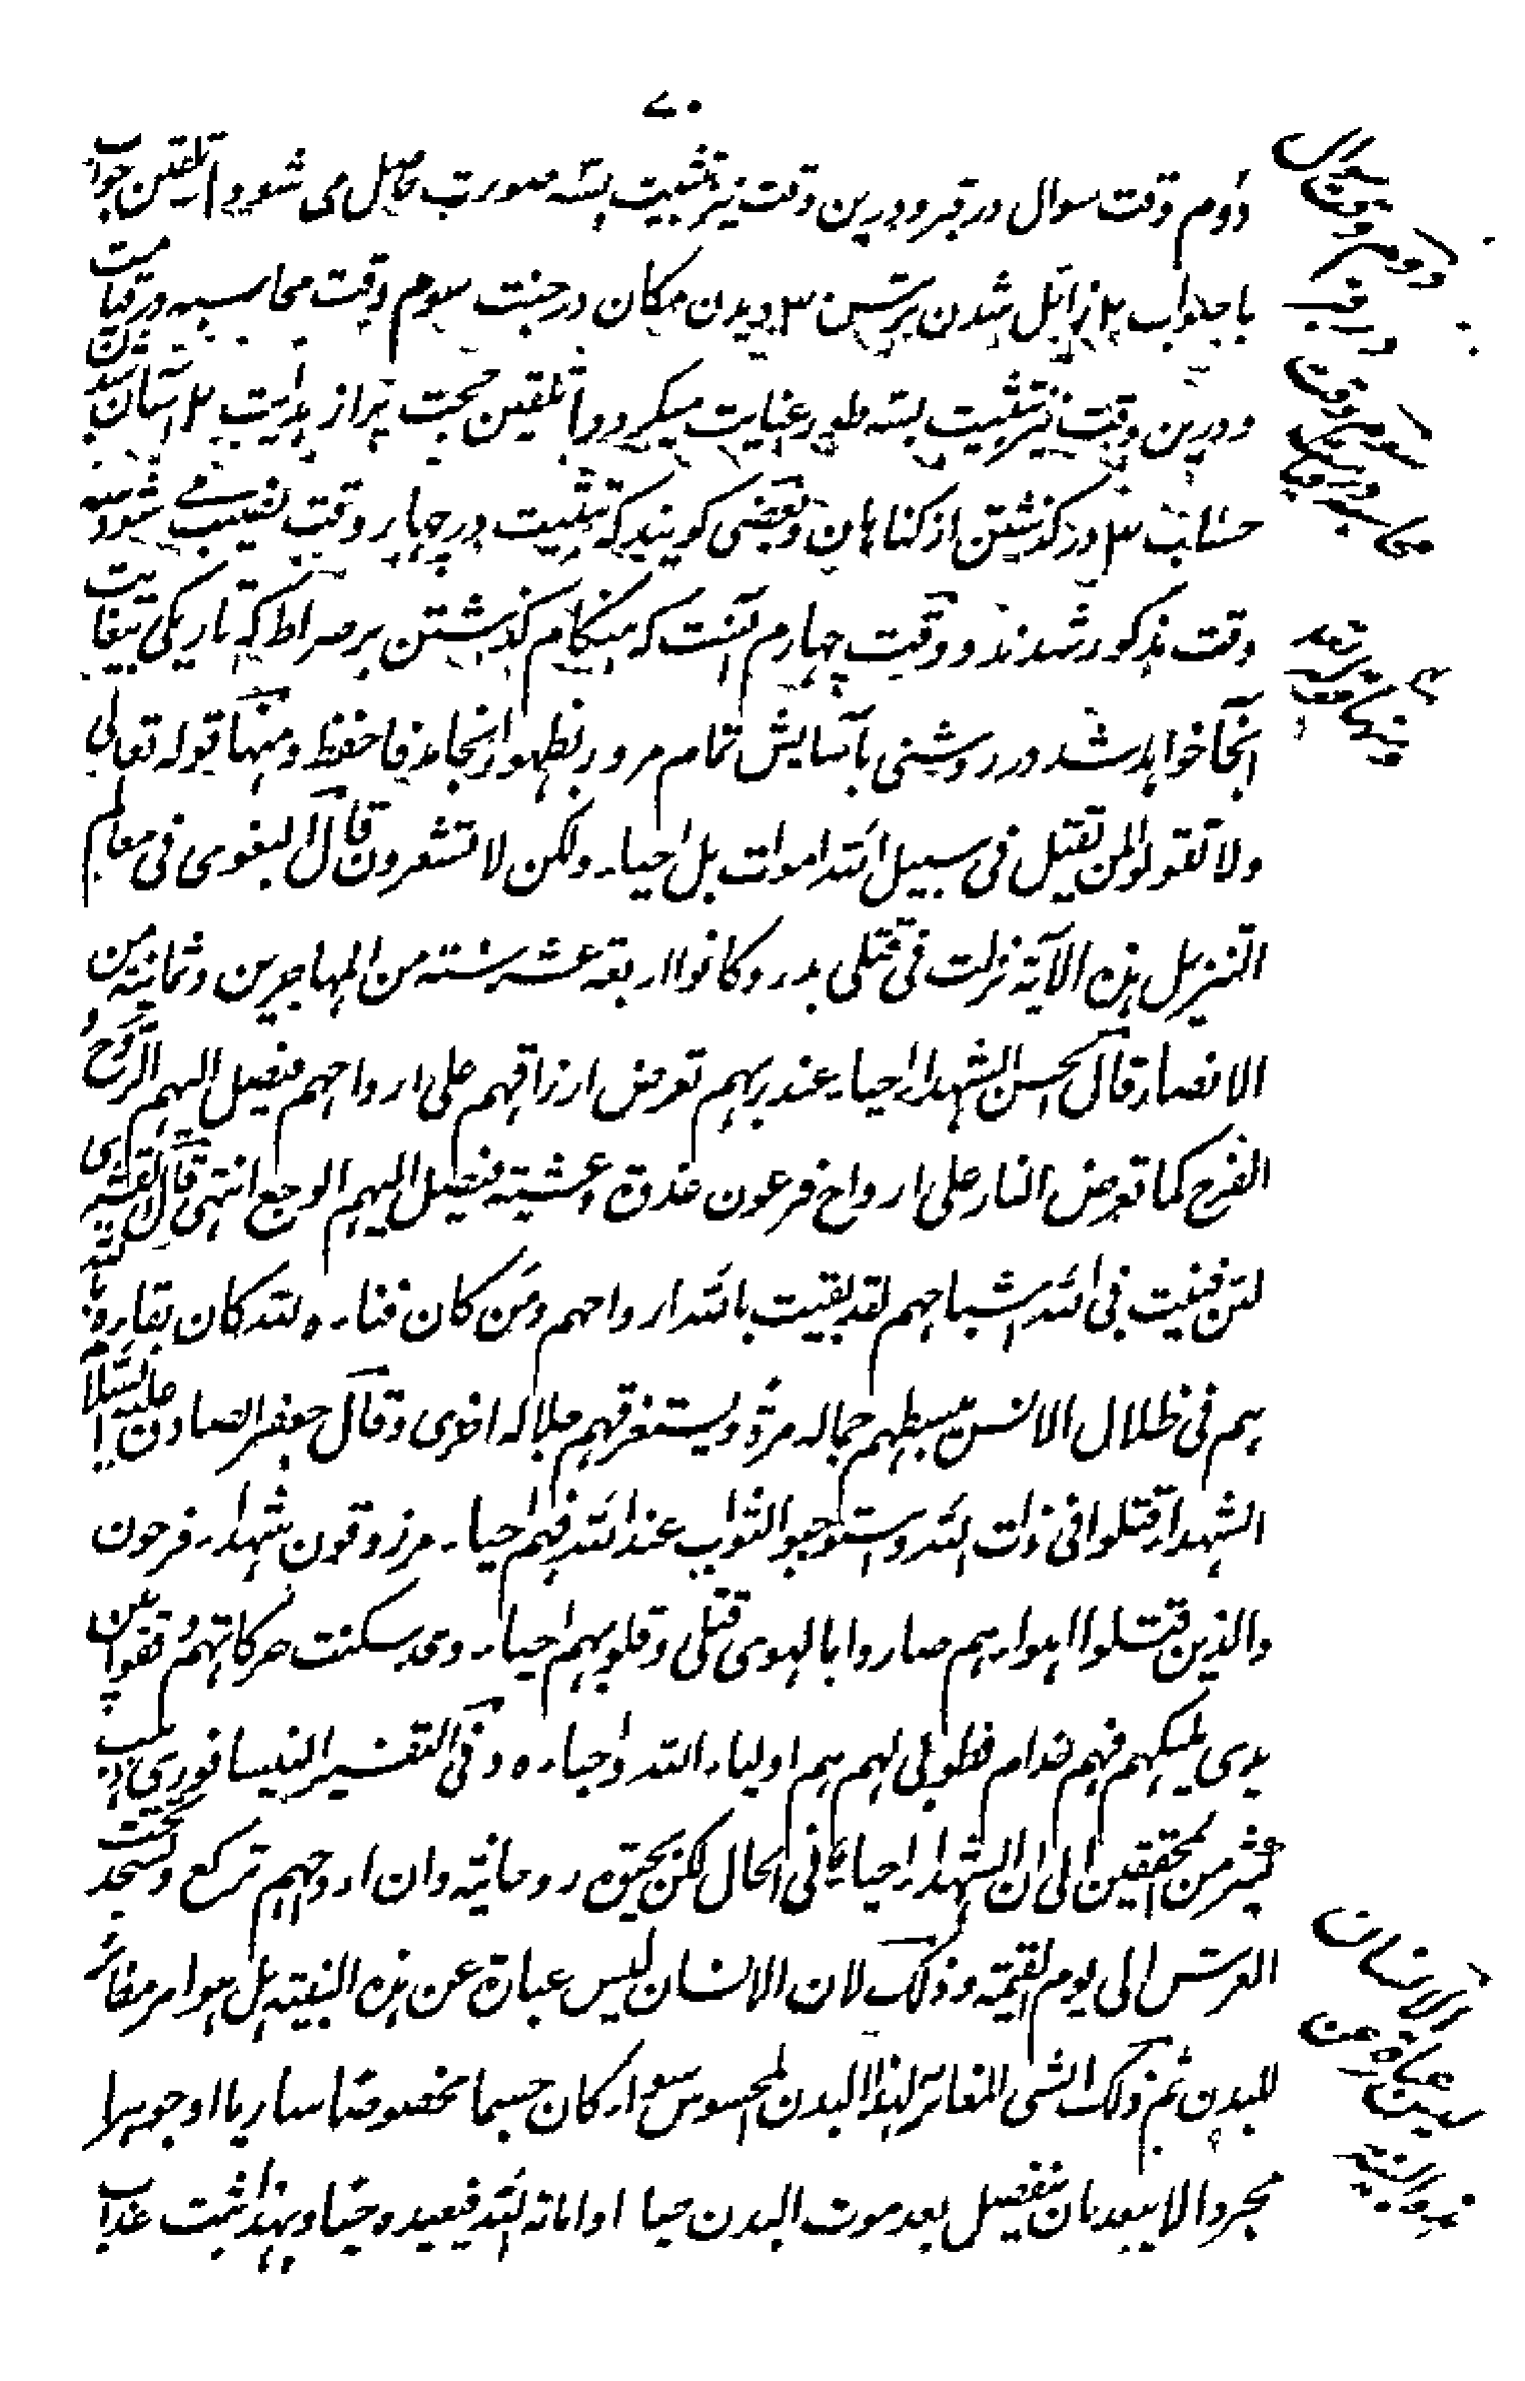 ۷۰
دوم وقت سوال در قبر و درین وقت نیز تثبیت بسه صورت حاصل می شود ۱ تلقین جواب
با جواب ۲ زائل شدن ترس ۳ دیدن مکان در جنت سوم وقت محاسبه در قیامت
و درین وقت نیز تثبیت بسه طور عنایت میگردد ۱ تلقین حجت پر از هدایت ۲ آسان شدن
حساب ۳ در گذشتن از گناهان و بعضی گویند که تثبیت در چهار وقت نصیب می شود سه
وقت مذکور شدند و وقت چهارم آنست که هنگام گذشتن بر صراط که تاریکی بغایت
آنجا خواهد شد در روشنی بآسایش تمام مرور بظهور انجامد فاحفظ ومنها قوله تعالی
ولا تقولوا لمن یقتل فی سبیل الله اموات بل احیاء ولکن لا تشعرون قال البغوی فی معالم
التنزیل هذه الآیة نزلت فی قتلی بدر وکانوا اربعة عشر ستة من المهاجرین وثمانیة من
الانصار قال الحسن الشهداء احیاء عند ربهم تعرض ارزاقهم علی ارواحهم فیصل الیهم الروح و
الفرح کما تعرض النار علی ارواح فرعون غدوة وعشیة فیصل الیهم الوجع انتهی قال القشیری
لئن فنیت فی الله اشباحهم لقد بقیت بالله ارواحهم ومن کان فناءه لله کان بقاءه بالله
هم فی ظلال الانس یبسطهم جماله مرة ویستغرقهم جلاله اخری وقال جعفر الصادق علیه السلام
الشهداء قتلوا فی ذات الله واستوجبوا الثواب عند الله فهم احیاء مرزوقون شهداء فرحون
والذین قتلوا اهواءهم صاروا بالهوی قتلی وقلوبهم احیاء وقد سکنت حرکاتهم وقفوا بین
یدی ملیکهم فهم خدام فطوبی لهم هم اولیاء الله واحباءه و فی التفسیر النیسافوری ذهب
کثیر من المحققین الی ان الشهداء احیاء فی الحال لکن بحیوة روحانیة وان ارواحهم ترکع وتسجد تحت
العرش الی یوم القیمة وذلک لان الانسان لیس عبارة عن هذه البنیة بل هو امر مغائر
للبدن ثم ذلک الشی المغائر لهذا البدن المحسوس سواء کان جسما مخصوصا ساریا او جوهرا
مجردا لا یبعد بان ینفصل بعد موت البدن حیا او اماته الله فیعیده حیا وبهذا ثبت عذاب
دوم وقت سوال
در قبر
سوم وقت
محاسبه در قیامت
ومنها قوله تعالی
الانسان
لیس عبارة عن
هذه البنیة